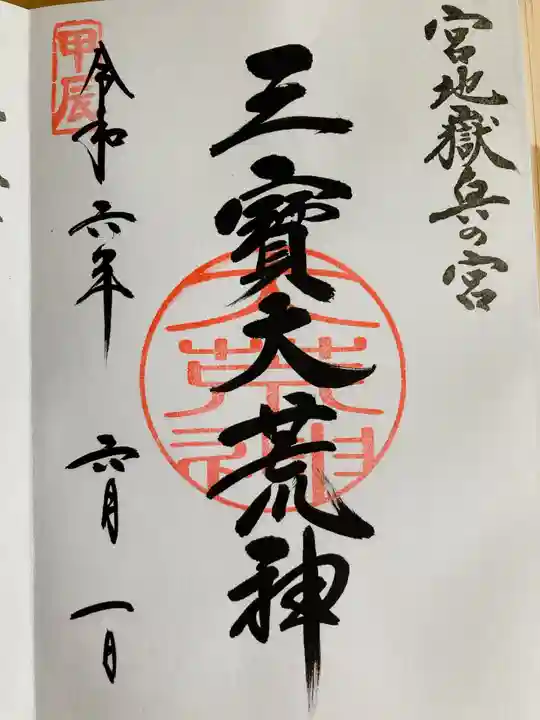 宮地嶽奥の宮
三寳大荒神
大荒神
甲辰
令和六年 六月 一日